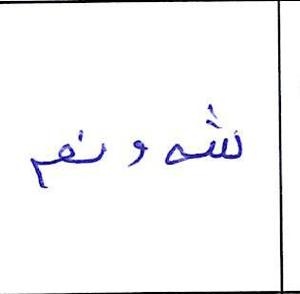 شه ونم